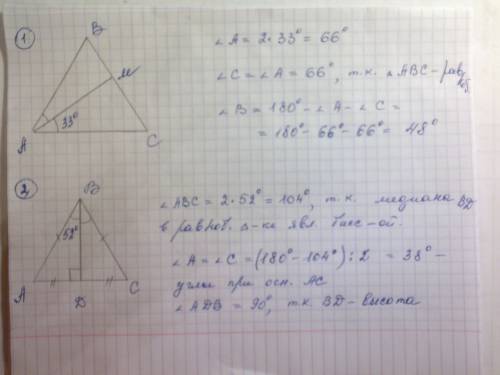 1
B
M
A 33° C
∠A = 2·33° = 66°
∠C = ∠A = 66°, т.к. △ABC – равноб.
∠B = 180° - ∠A - ∠C =
= 180° - 66° - 66° = 48°
2
B
52°
A D C
∠ABC = 2·52° = 104°, т.к. медиана BD
в равноб. △-ке явл. бисс-ой.
∠A = ∠C = (180° - 104°) : 2 = 38° –
углы при осн. AC
∠ADB = 90°, т.к. BD – высота